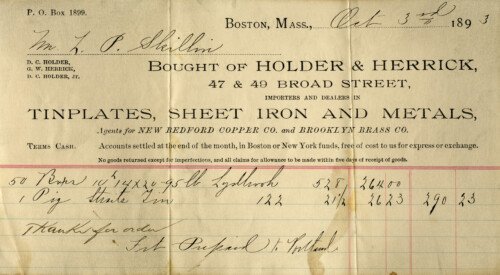 P. O. Box 1899.
Boston, Mass., Oct 3rd 1893
Mr L. P. Skillin
D. C. Holder,
G. W. Herrick,
D. C. Holder, Jr.
Bought of HOLDER & HERRICK,
47 & 49 BROAD STREET,
IMPORTERS AND DEALERS IN
TINPLATES, SHEET IRON AND METALS,
Agents for NEW BEDFORD COPPER CO. and BROOKLYN BRASS CO.
Terms Cash. Accounts settled at the end of the month, in Boston or New York funds, free of cost to us for express or exchange.
No goods returned except for imperfections, and all claims for allowance to be made within five days of receipt of goods.
50 Boxes 14x20 95 lb Lydbrook 528 264.00
1 Pig Straits Tin 122 21 1/2 26 23 290 23
Thanks for order
Frt Prepaid to Portland